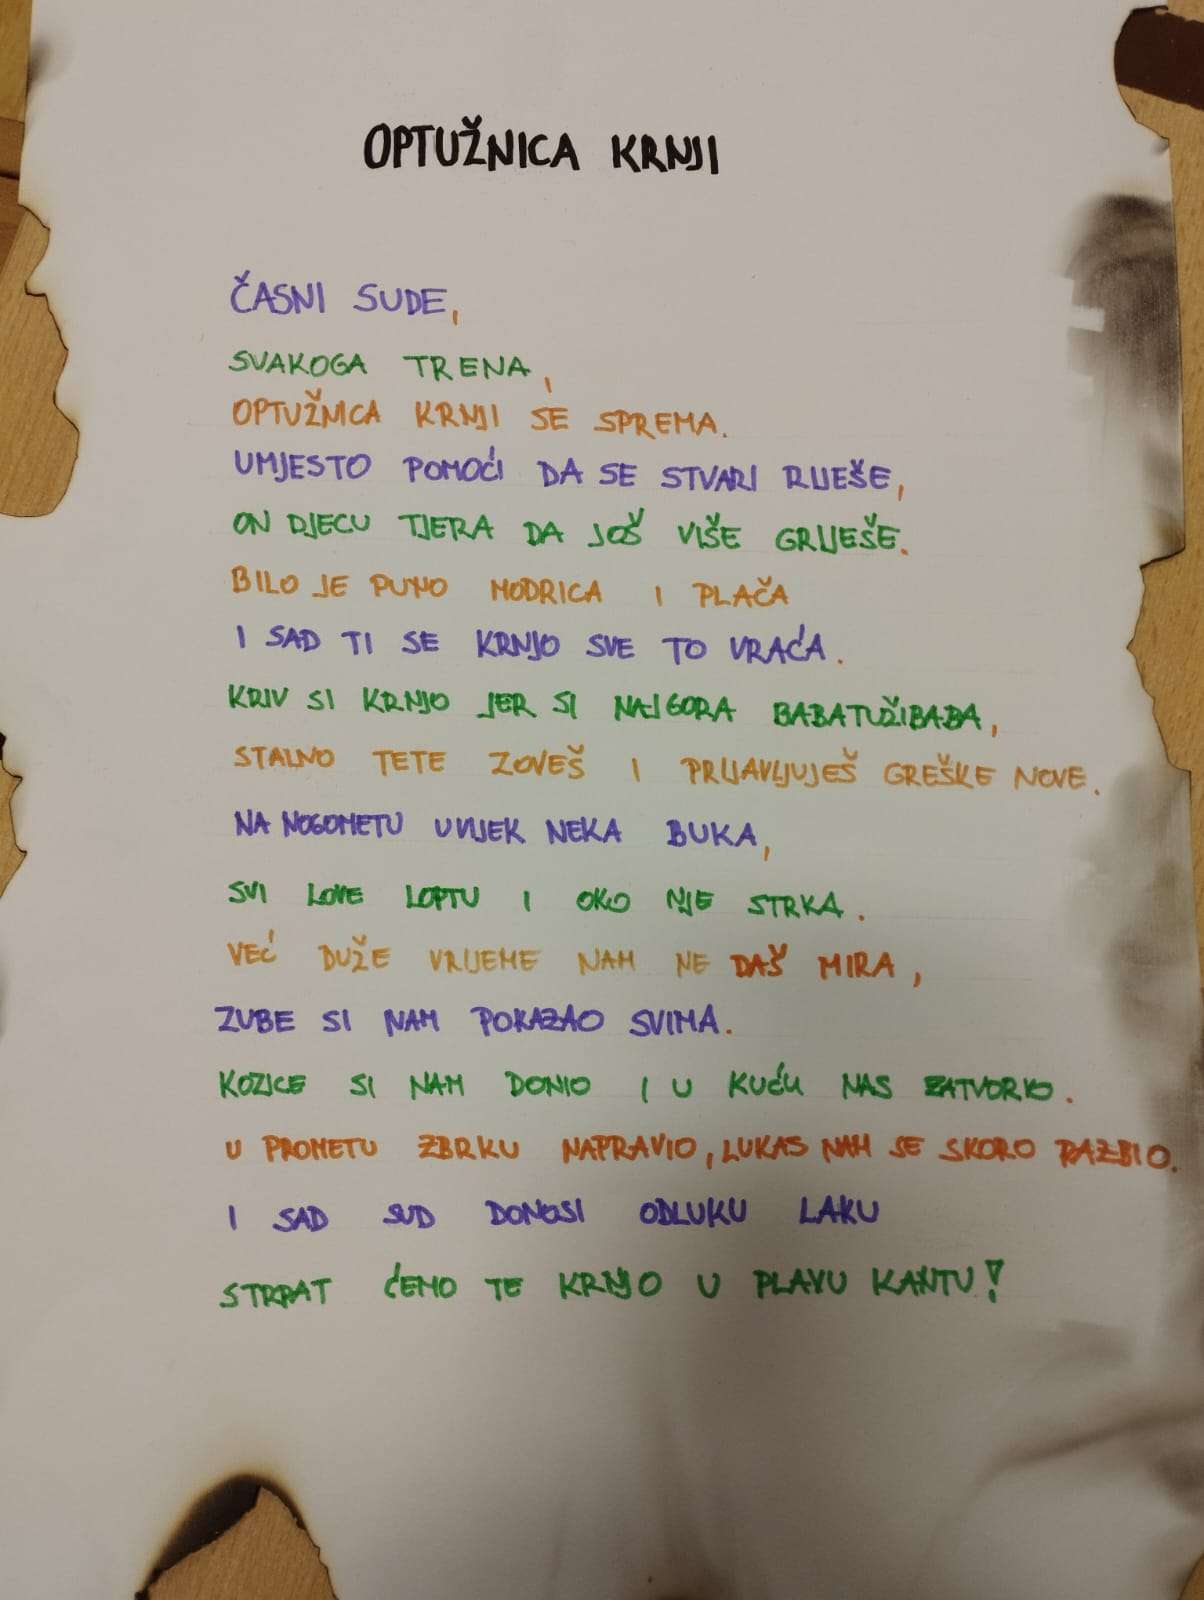 OPTUŽNICA KRNJI
ČASNI SUDE,
SVAKOGA TRENA,
OPTUŽNICA KRNJI SE SPREMA.
UMJESTO POMOĆI DA SE STVARI RIJEŠE,
ON DJECU TJERA DA JOŠ VIŠE GRIJEŠE.
BILO JE PUNO MODRICA I PLAČA
I SAD TI SE KRNJO SVE TO VRAĆA.
KRIV SI KRNJO JER SI NAJGORA BABATUŽIBABA,
STALNO TETE ZOVEŠ I PRIJAVLJUJEŠ GREŠKE NOVE.
NA NOGOMETU UVIJEK NEKA BUKA,
SVI LOVE LOPTU I OKO NJE STRKA.
VEĆ DUŽE VRIJEME NAM NE DAŠ MIRA,
ZUBE SI NAM POKAZAO SVIMA.
KOZICE SI NAM DONIO I U KUĆU NAS ZATVORIO.
U PROMETU ZBRKU NAPRAVIO, LUKAS NAM SE SKORO RAZBIO.
I SAD SUD DONOSI ODLUKU LAKU
STRPAT ĆEMO TE KRNJO U PLAVU KANTU!